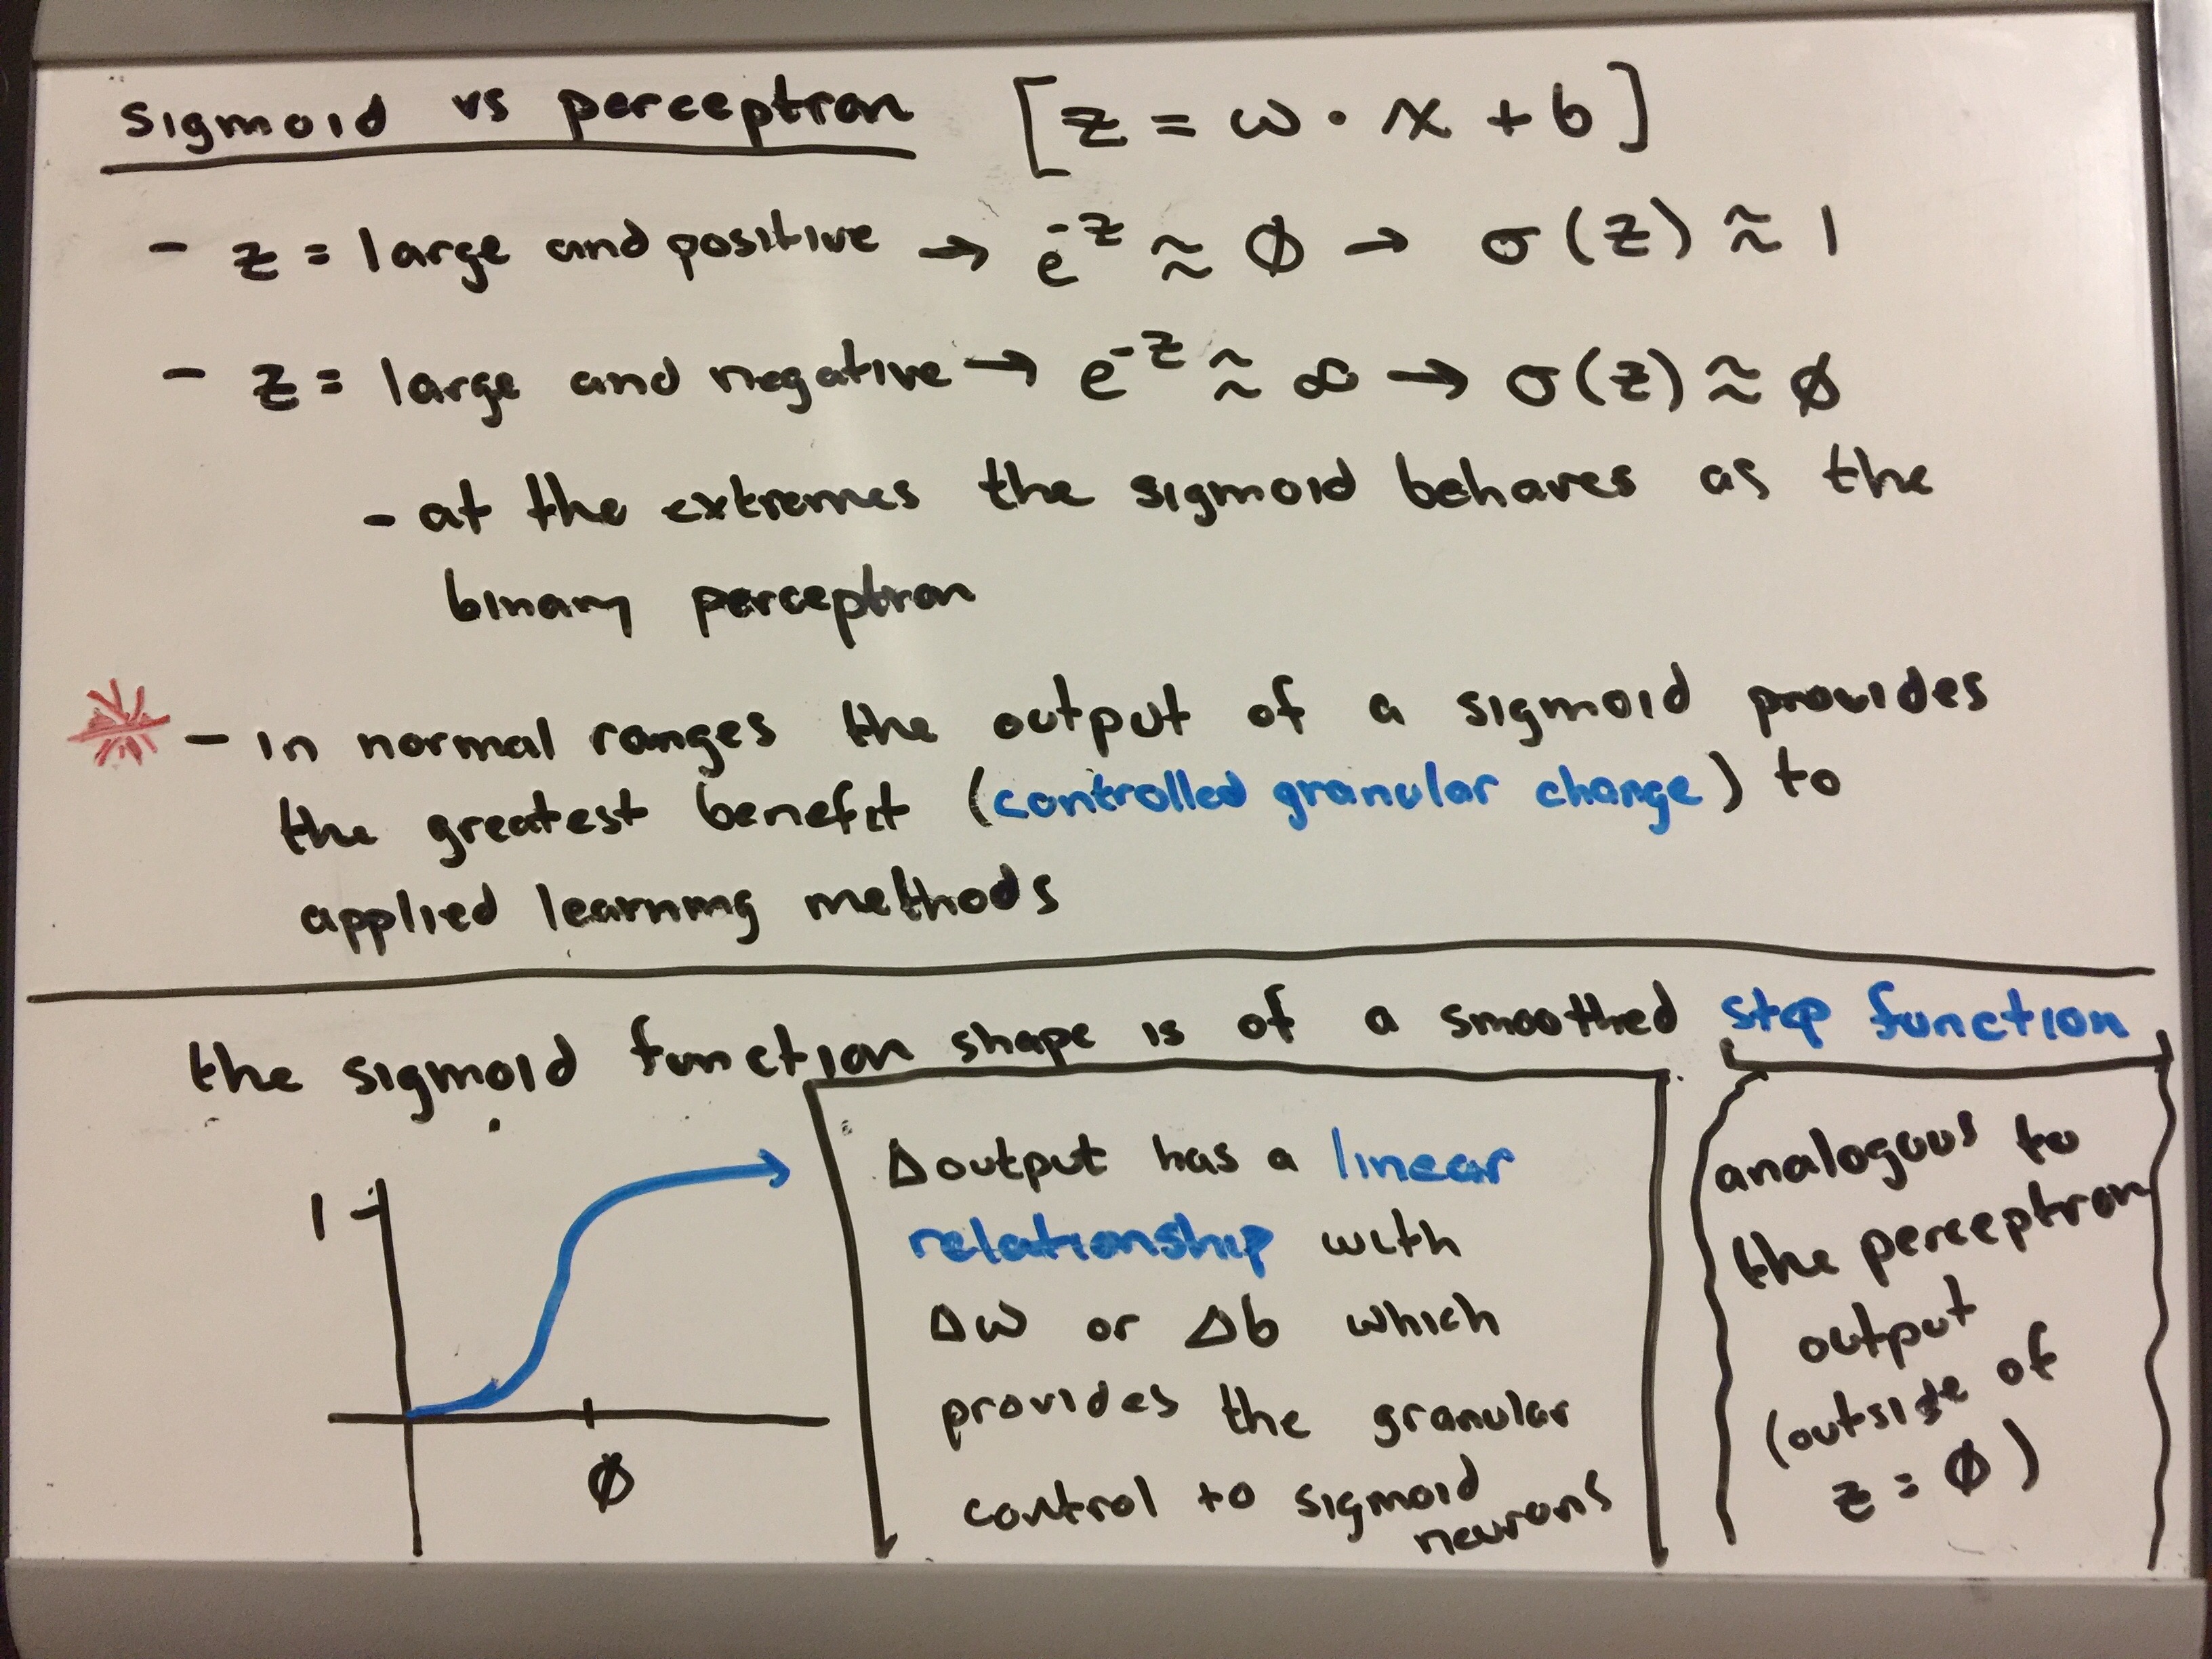 sigmoid vs perceptron [z = ω · x + b]
- z = large and positive → e^-z ≈ ∅ → σ(z) ≈ 1
- z = large and negative → e^-z ≈ ∞ → σ(z) ≈ ∅
- at the extremes the sigmoid behaves as the
binary perceptron
- in normal ranges the output of a sigmoid provides
the greatest benefit (controlled granular change) to
applied learning methods
the sigmoid function shape is of a smoothed step function
1
∅
Δoutput has a linear
relationship with
Δω or Δb which
provides the granular
control to sigmoid
neurons
analogous to
the perceptron
output
(outside of
z = ∅)